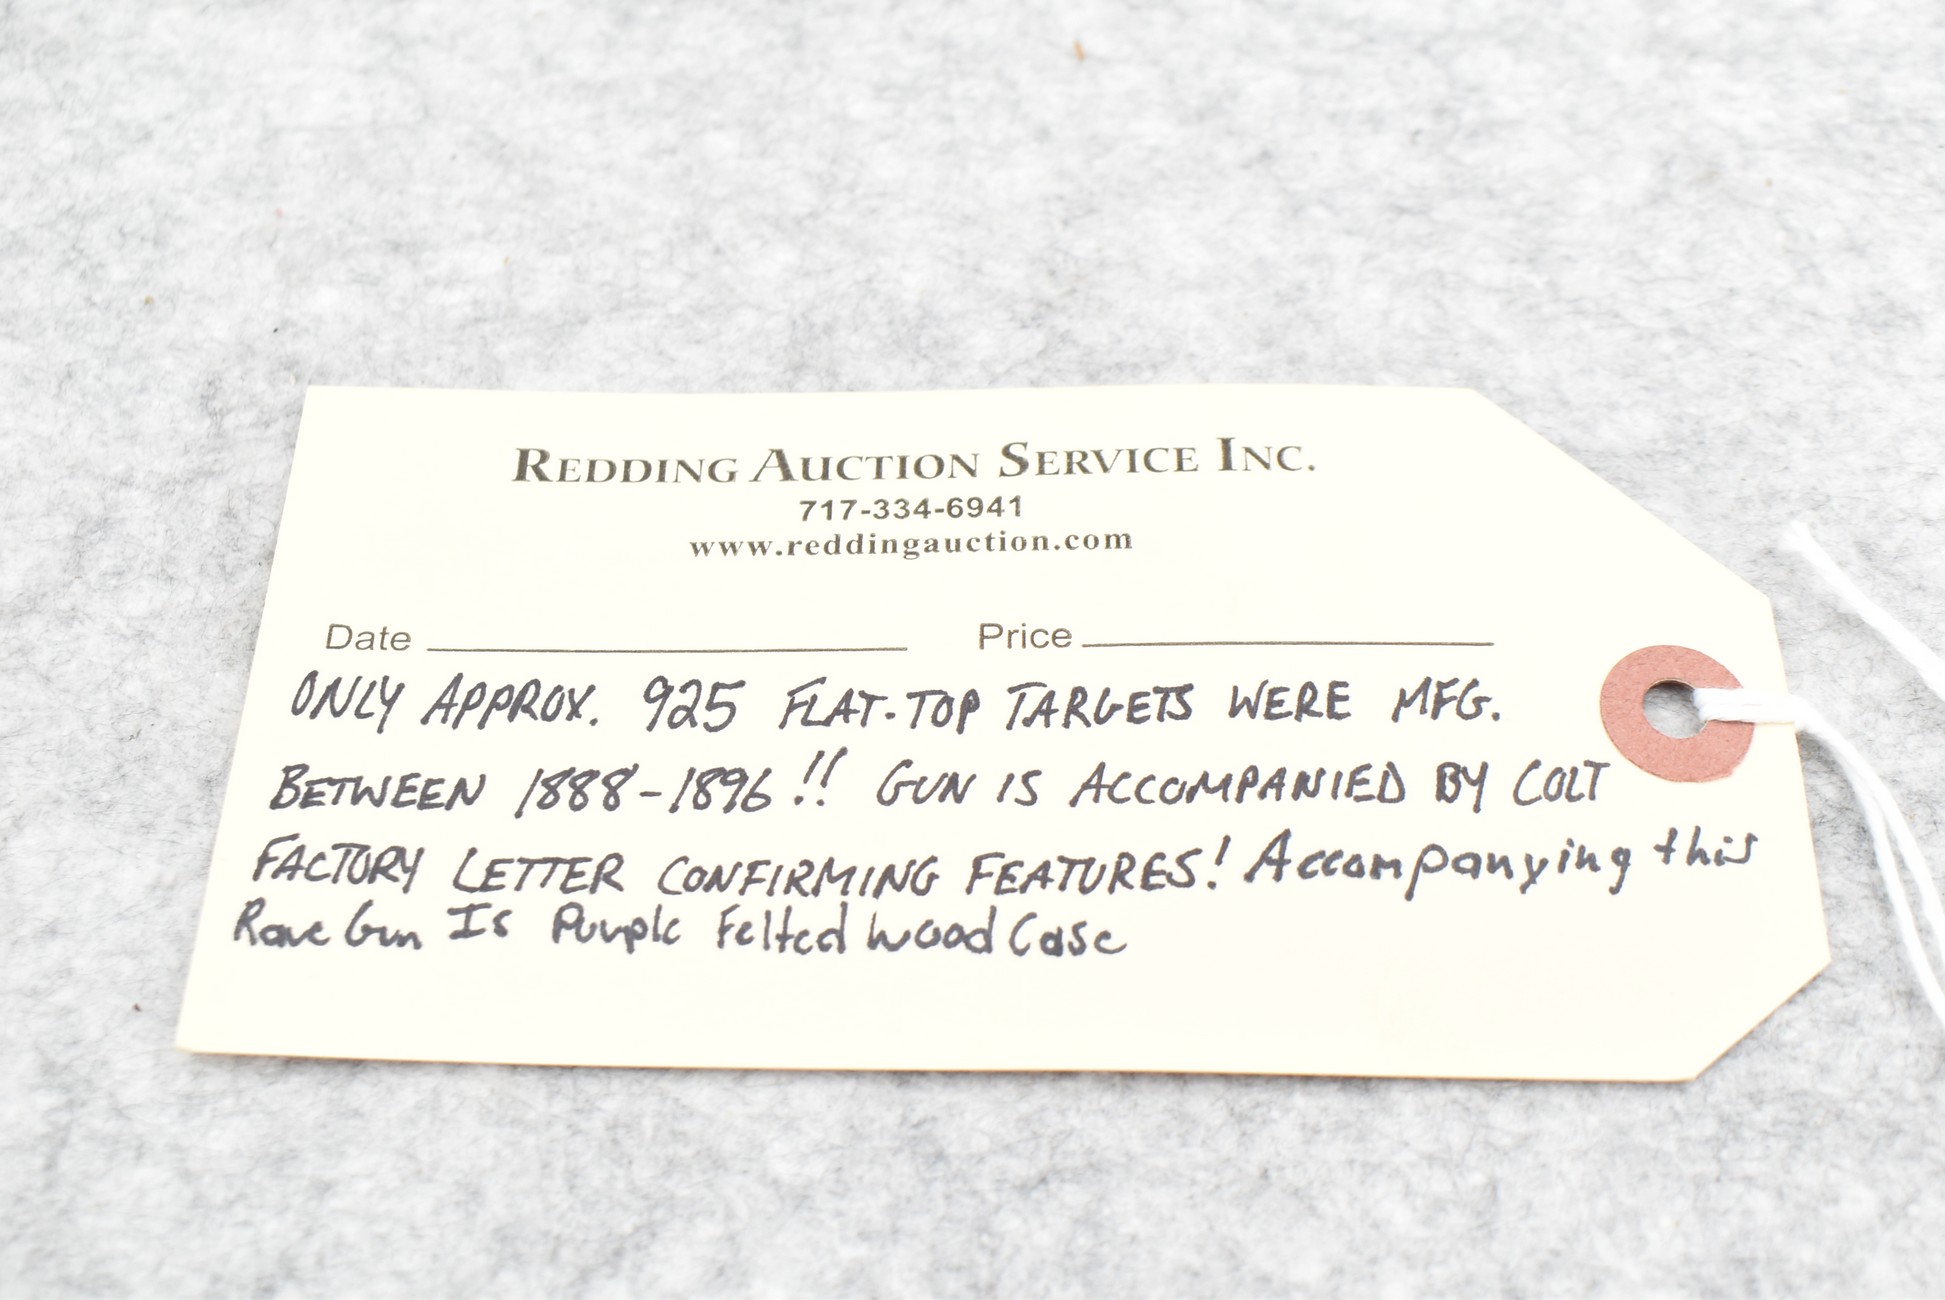 REDDING AUCTION SERVICE INC.
717-334-6941
www.reddingauction.com
Date Price
ONLY APPROX. 925 FLAT-TOP TARGETS WERE MFG.
BETWEEN 1888-1896!! GUN IS ACCOMPANIED BY COLT
FACTORY LETTER CONFIRMING FEATURES! Accompanying this
Rare Gun Is Purple Felted Wood Case